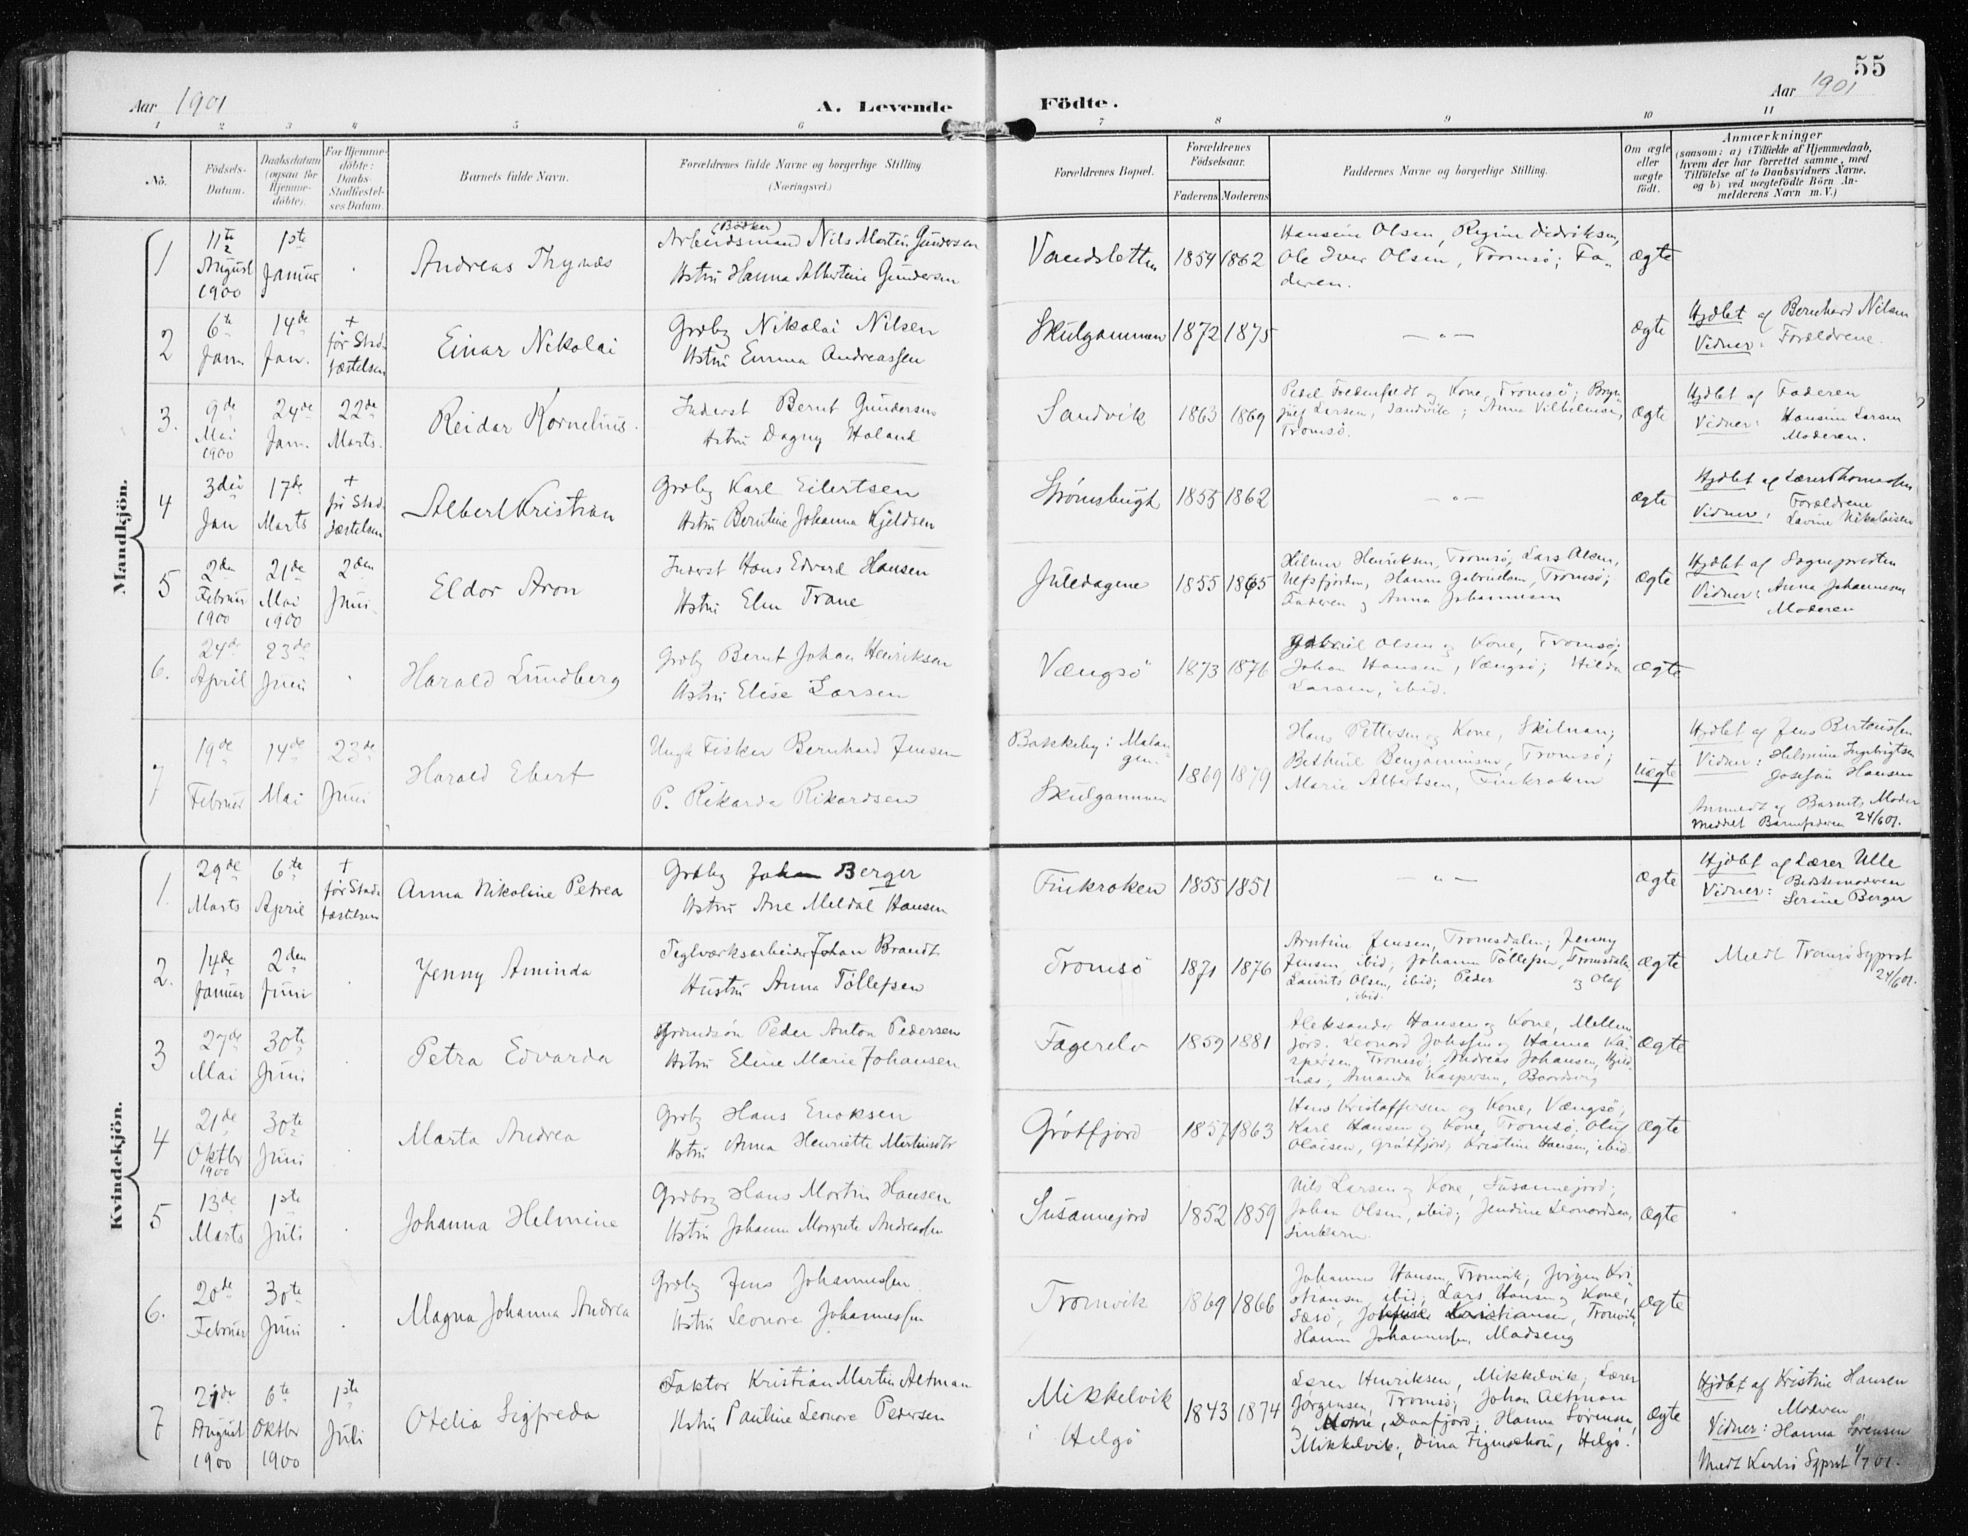 55
Aar 1901
A. Levende Födte.
Aar 1901
1 2 3 4 5 6 7 8 9 10 11
No.
Födsels-Datum.
Daabsdatum (ogsaa for Hjemme-döbte).
For Hjemme-döbte: Daabs-Stadfæstel-ses Datum.
Barnets fulde Navn.
Forældrenes fulde Navne og borgerlige Stilling.
(Næringsvei.)
Forældrenes Bopæl.
Forældrenes Födselsaar.
Faderens Moderens
Faddernes Navne og borgerlige Stilling.
Om ægte eller uægte födt.
Anmærkninger
(saasom: a) i Tilfælde af Hjemmedaab, hvem der har forrettet samme, med Tilföielse af to Daabsvidners Navne, og b) ved uægtefödte Börn An-melderens Navn m. V.)
Mandkjön.
1 11te August 1900 1ste Januar . Andreas Thynæs
(Bödker)
Arbeidsmand Nils Martin Gundersen
Hstru Hanna Albertine Gundersen
Vandsletten 1854 1862
Hansine Olsen, Regine Didriksen,
Ole Iver Olsen, Tromsö; Fa-
deren.
ægte
2 6te Jan 14de Jan. + för Stad fæstelsen Einar Nikolai
Grdbr Nikolai Nilsen
Hstru Emma Andreassen
Skulgammen 1872 1875 — " — ægte
Hjdbt af Bernhard Nilsen
Vidner: Forældrene.
3. 9de Mai 1900 24de Jan. 22de Marts. Reidar Kornelius.
Inderst Bernt Gundersen
Hstru Dagny Haland
Sandvik 1863 1869
Tromsö.
ægte
Hjdbt af Faderen
Vidner: Hansine Larsen
Moderen.
4 3die Jan 17de Marts + fr Stad fæstelsen Albert Kristian
Grdbr Karl Eilertsen
Hstru Berntine Johanna Kjeldsen
Strömsbugt 1855 1862 — " — ægte
Hjdbt af Lærer Thomassen
Vidner: Forældrene
Lavine Nikolaisen
5 2den Februar 1900 21de Mai 1900 2den Juni Eldor Aron
Inderst Hans Edvard Hansen
Hstru Elen Trane
Juledagene 1855 1865
Hilmer Henriksen, Tromsö; Lars Olsen,
Ulfsfjorden, Hanna Gabrielsen, Tromsö;
Faderen og Anna Johannesen
ægte
Hjdbt af Sognepresten
Vidner: Anna Johannesen
Moderen
6. 24de April 23de Juni . Harald Lundberg
Grdbr Bernt Johan Henriksen
Hstru Elise Larsen
Vængsö 1873 1876
Gabriel Olsen og Kone, Tromsö;
Johan Hansen, Vængsö; Hilda
Larsen, ibid.
ægte
7 19de Februar 14de Mai 23de Juni Harald Ebert
Ungk Fisker Bernhard Jensen
P. Rikarda Rikardsen
Bakkeby i Malan-
gen.
Skulgammen
1869 1879
Hans Pettersen og Kone, Skilnan;
Bethuel Benjaminsen, Tromsö;
Marie Albertsen, Finkroken
uægte
Hjdbt af Jens Berteussen
Vidner: Helmine Ingebrigtsen
Josefine Hansen
Anmeldt af Barnets Moder
Meddelt Barnefaderen 24/6 01.
Kvindekjön.
1. 29de Marts 6te April + för Stad fæstelsen Anna Nikoline Petrea
Grdbr Johan Berger
Hstru Ane Meldal Hansen
Finkroken 1855 1851 — " — ægte
Hjdbt af Lærer Ulle
Vidner: Bedstemoderen
Serine Berger
2. 14de Januar 2den Juni . Jenny Aminda
Teglværksarbeider Johan Brandt
Hustru Anna Töllefsen
Tromsö 1871 1876
Arntine Jensen, Tromsdalen; Jenny
Jensen, ibid; Johanna Töllefsen, Tromsdalen,
Laurits Olsen, ibid; Peder og Olaf
ibid.
ægte
Meldt Tromsö Sgprst
24/6 01.
3 27de Mai 30te Juni . Petra Edvarda
Grdmdsön Peder Anton Pedersen
Hstru Eline Marie Johansen
Fagerelv 1859 1881
Aleksander Hansen og Kone, Mellem
jord. Leonard Johnsen og Hanna Ka-
spersen, Tromsö; Andreas Johansen,
næs, Amanda Kaspersen,
ægte
4 21de Oktbr 1900 30te Juni . Marta Andrea
Grdbr Hans Enoksen
Hstru Anna Henriette Martinsdtr
Grötfjord 1857 1863
Hans Kristoffersen og Kone, Vængsö,
Karl Hansen og Kone, Tromsö. Oluf
Olaisen, Grötfjord; Kristine Hansen, ibid.
ægte
5 13de Marts 1ste Juli . Johanna Helmine
Grdbrg Hans Martin Hansen
Hstru Johanna Margrete Andreassen
Susannejord 1852 1859
Nils Larsen og Kone, Susannejord;
Johan Olsen, ibid; Jendine Leonardsen,
ægte
6. 20de Februar 30te Juni . Magna Johanna Andrea
Grdbr Jens Johannessen
Hstru Leonore Johannessen
Tromvik 1869 1866
Johannes Hansen, Tromvik; Jörgen Kri-
stiansen, ibid; Lars Hansen og Kone,
Kristiansen, Tromvik,
Hanna Johannessen, Madseng
ægte
7 21de August 1900 6te Oktbr 1900 1ste Juli Otelia Sigfreda
Faktor Kristian Martin Aetman
Hstru Pauline Leonore Pedersen
Mikkelvik
i Helgö
1843 1874
Lærer Henriksen, Mikkelvik, Lærer
Jörgensen, Tromsö; Johan Aetman
og Kone, Daafjord; Hanna Sörensen,
Mikkelvik; Dina Figenschou, Helgö.
ægte
Hjdbt af Kristine Hansen
Moderen
Vidner: Hanna Sörensen
Meldt Karlsö Sgprst 1/7 01.